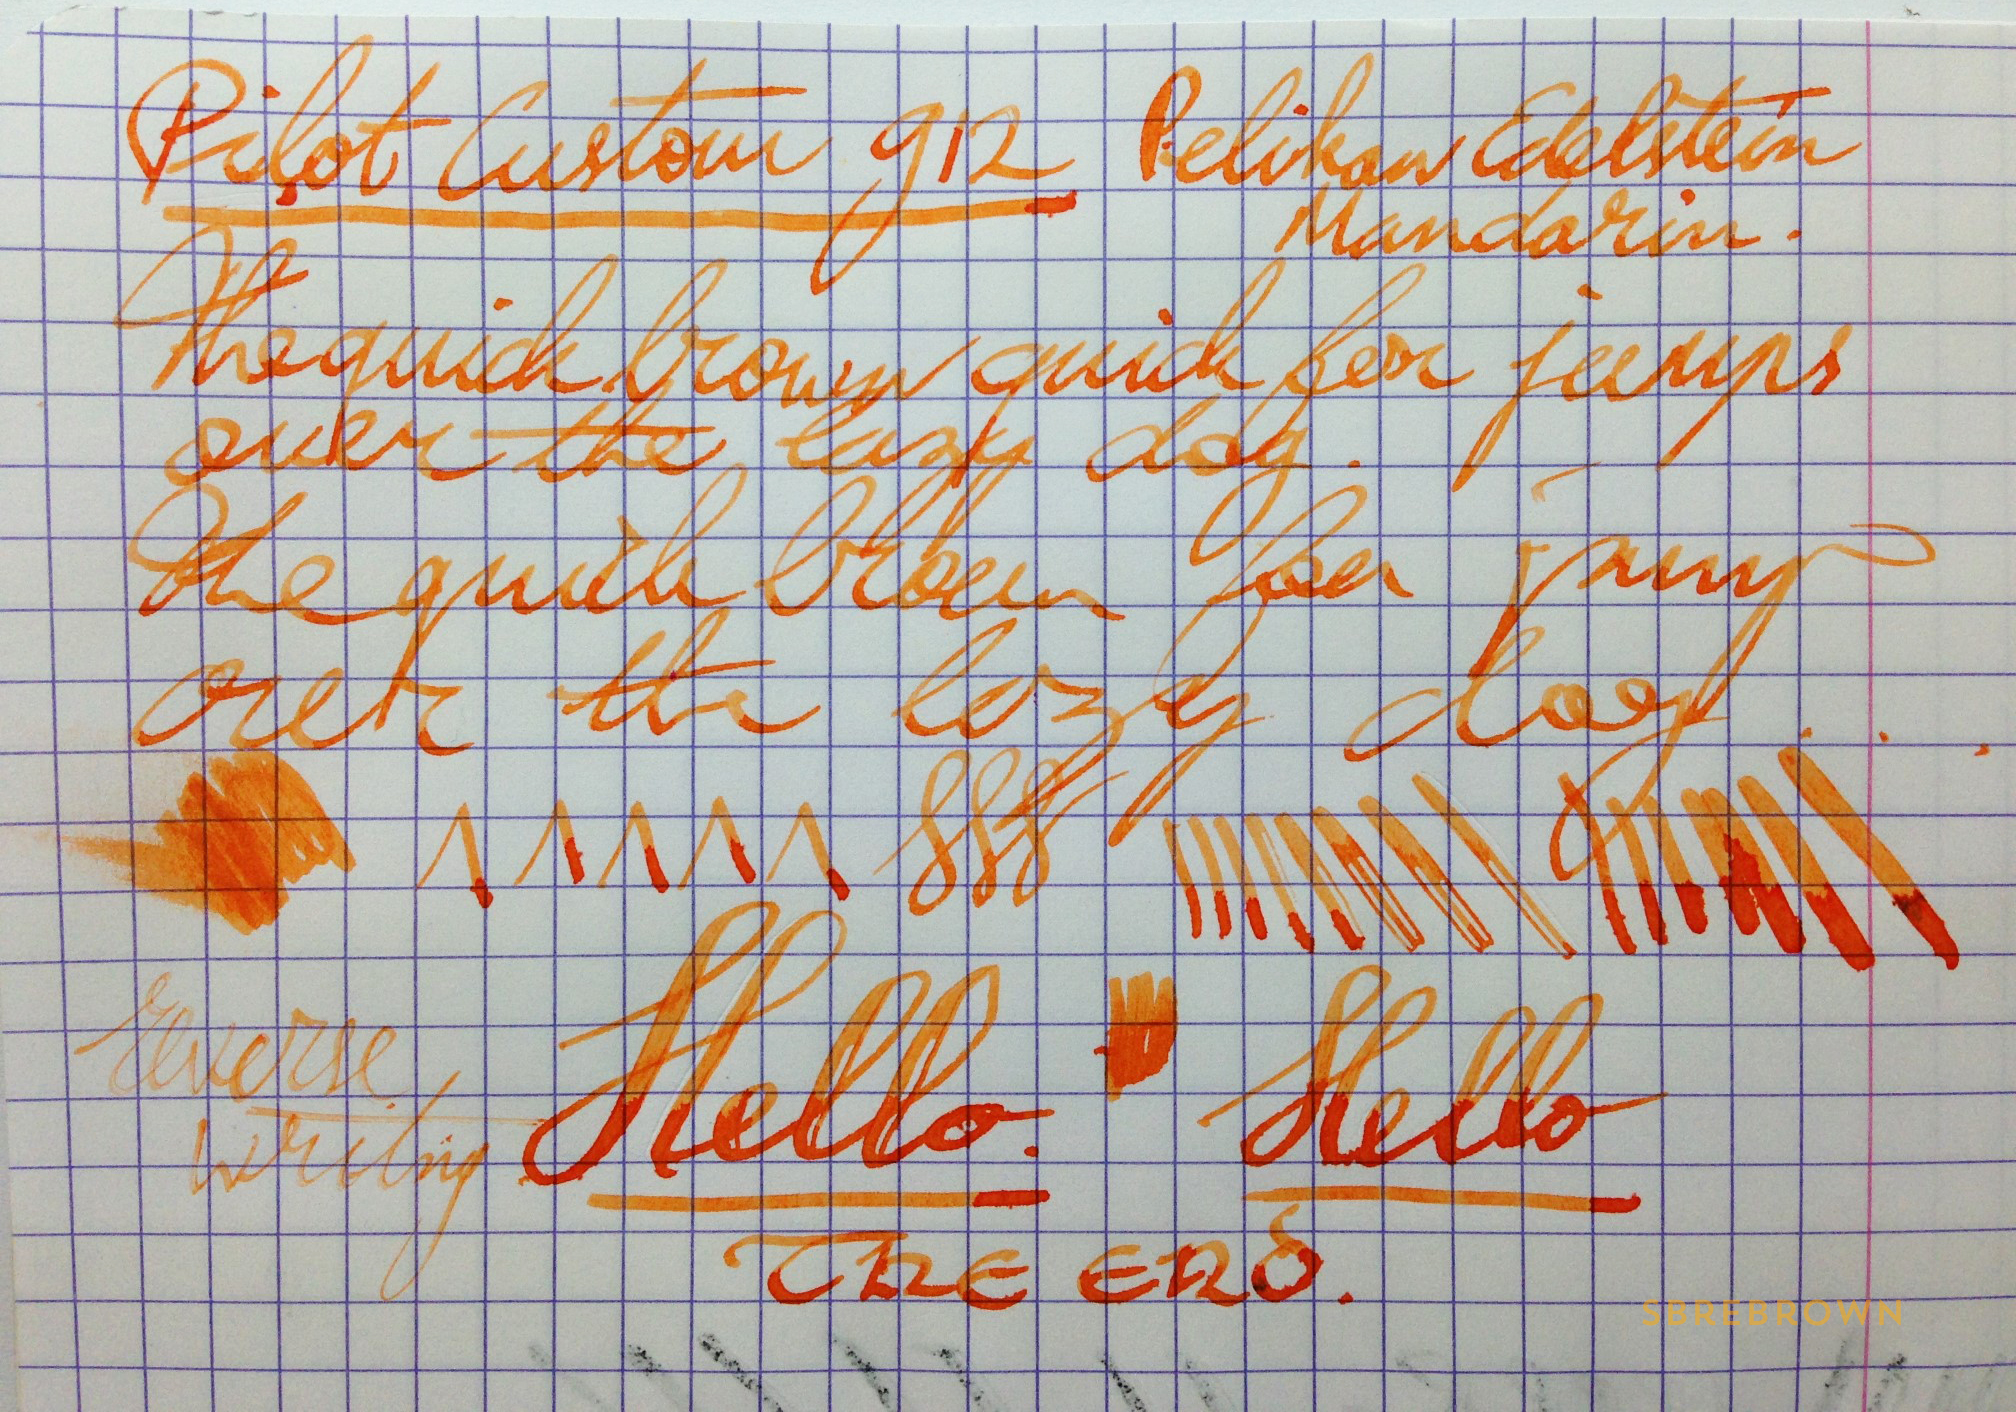 Pilot Custom 912 Pelikan Edelstein
Mandarin.
The quick brown quick fox jumps
over the lazy dog.
The quick brown fox jump
over the lazy dog...
Reverse
writing
Hello. Hello
THE END.
SBREBROWN